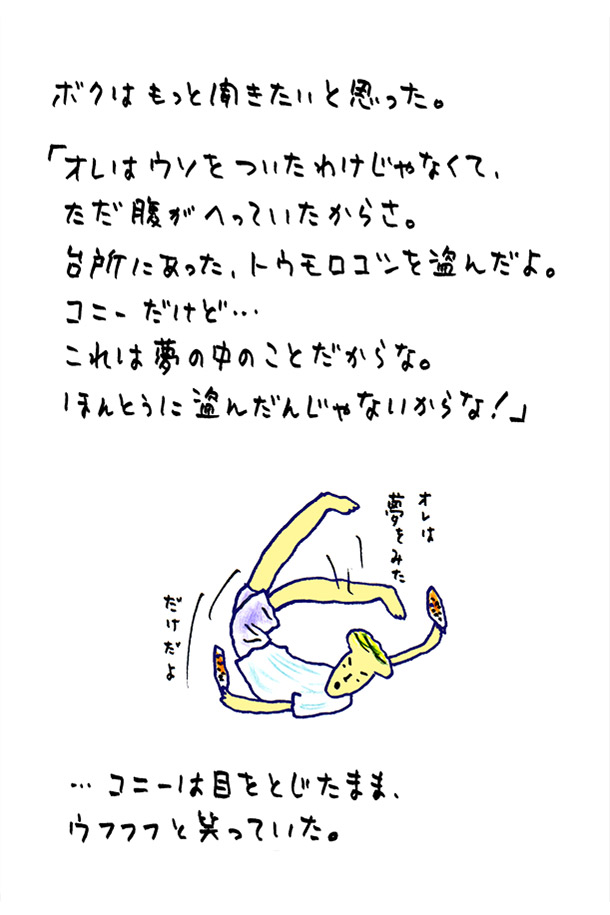 ボクはもっと聞きたいと思った。
「オレはウソをついたわけじゃなくて、
ただ腹がへっていたからさ。
台所にあった、トウモロコシを盗んだよ。
コニーだけど…
これは夢の中のことだからな。
ほんとうに盗んだんじゃないからな!」
オレは
夢をみた
だけだよ
…コニーは目をとじたまま、
ウフフフと笑っていた。